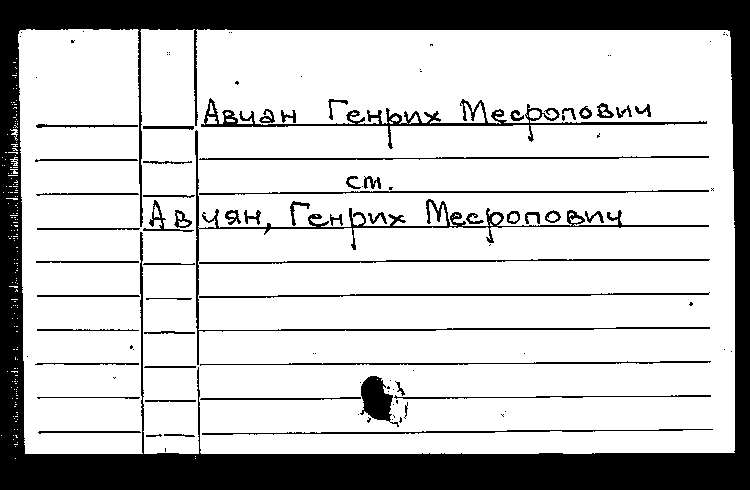 Авчан Генрих Месропович
ст.
Авчян, Генрих Месропович